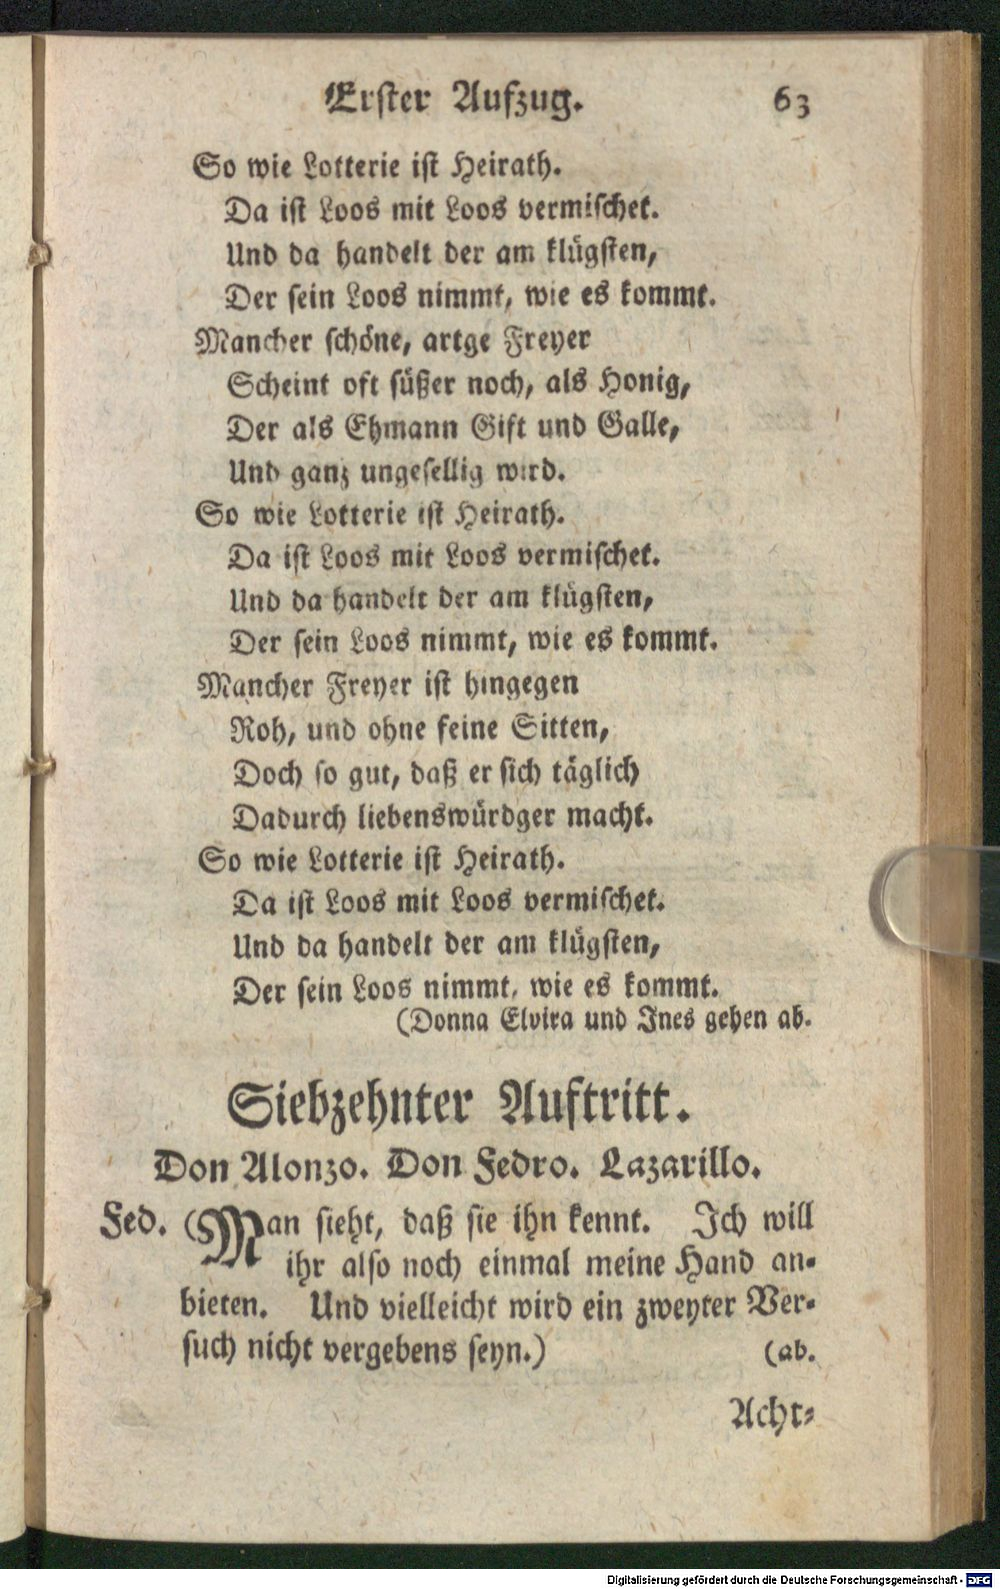 Erster Aufzug. 63
So wie Lotterie ist Heirath.
Da ist Loos mit Loos vermischet.
Und da handelt der am klügsten,
Der sein Loos nimmt, wie es kommt.
Mancher schöne, artge Freyer
Scheint oft süßer noch, als Honig,
Der als Ehmann Gift und Galle,
Und ganz ungesellig wird.
So wie Lotterie ist Heirath.
Da ist Loos mit Loos vermischet.
Und da handelt der am klügsten,
Der sein Loos nimmt, wie es kommt.
Mancher Freyer ist hingegen
Roh, und ohne feine Sitten,
Doch so gut, daß er sich täglich
Dadurch liebenswürdger macht.
So wie Lotterie ist Heirath.
Da ist Loos mit Loos vermischet.
Und da handelt der am klügsten,
Der sein Loos nimmt, wie es kommt.
(Donna Elvira und Ines gehen ab.
Siebzehnter Auftritt.
Don Alonzo. Don Fedro. Lazarillo.
Fed. (Man sieht, daß sie ihn kennt. Ich will
ihr also noch einmal meine Hand an-
bieten. Und vielleicht wird ein zweyter Ver-
such nicht vergebens seyn.) (ab.
Acht-
Digitalisierung gefördert durch die Deutsche Forschungsgemeinschaft - DFG